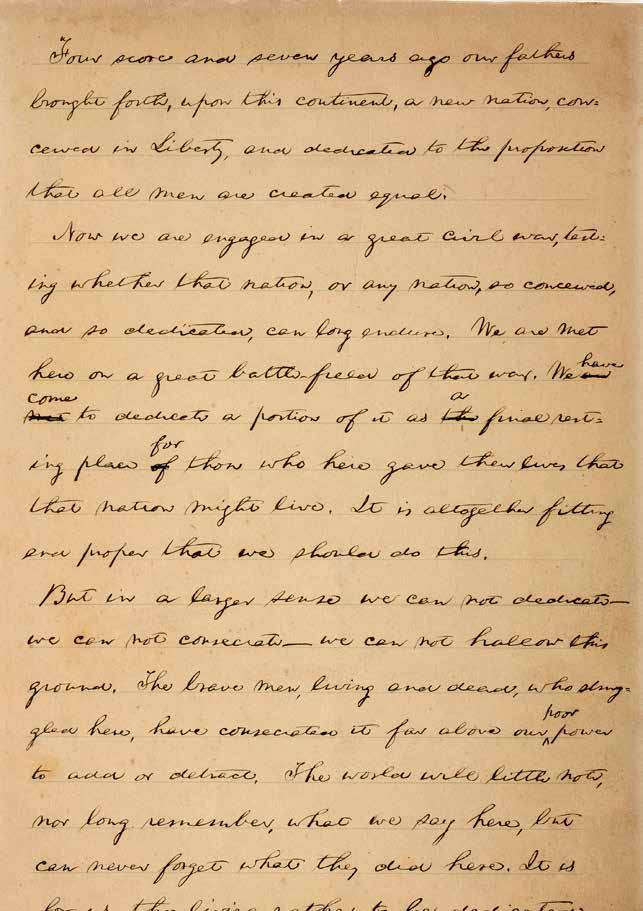 Four score and seven years ago our fathers
brought forth, upon this continent, a new nation, con-
ceived in Liberty, and dedicated to the proposition
that all men are created equal.
Now we are engaged in a great civil war, test-
ing whether that nation, or any nation, so conceived,
and so dedicated, can long endure. We are met
here on a great battle-field of that war. We are have
met come to dedicate a portion of it as the a final rest-
ing place of for those who here gave their lives that
that nation might live. It is altogether fitting
and proper that we should do this.
But in a larger sense we can not dedicate—
we can not consecrate— we can not hallow this
ground. The brave men, living and dead, who strug-
gled here, have consecrated it far above our poor power
to add or detract. The world will little note,
nor long remember, what we say here, but
can never forget what they did here. It is
for us, the living, rather to be dedicated